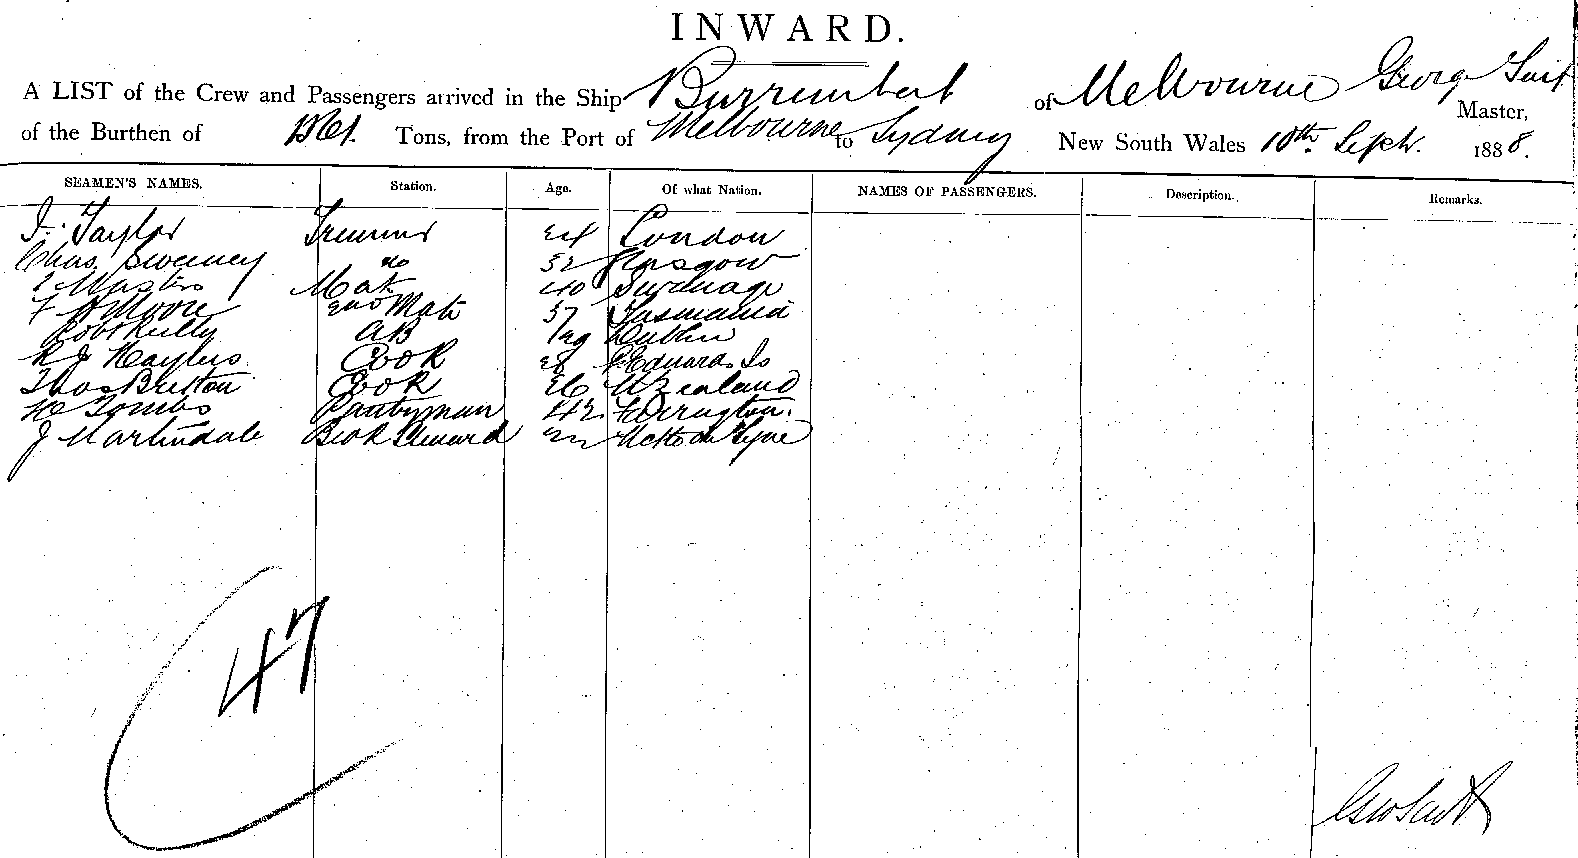 INWARD.
A LIST of the Crew and Passengers arrived in the Ship Burrumbeet of Melbourne George
Master,
of the Burthen of Tons, from the Port of Melbourne to Sydney New South Wales 10th Sept. 1888.
SEAMEN'S NAMES. Station. Age. Of what Nation. NAMES OF PASSENGERS. Description. Remarks.
Taylor Trimmer 24 London
Chas. Sweeney do 32 Glasgow
Masters Mate 40 Swanage
F Moore 2nd Mate 37 Tasmania
Robt Reilly AB Dublin
R J Cook 28 P. Edwards Is
Thos Cook 26 N Zealand
H Tombs Pantryman 42 Farrington.
J Martindale Steward 22
47
Geo Scott